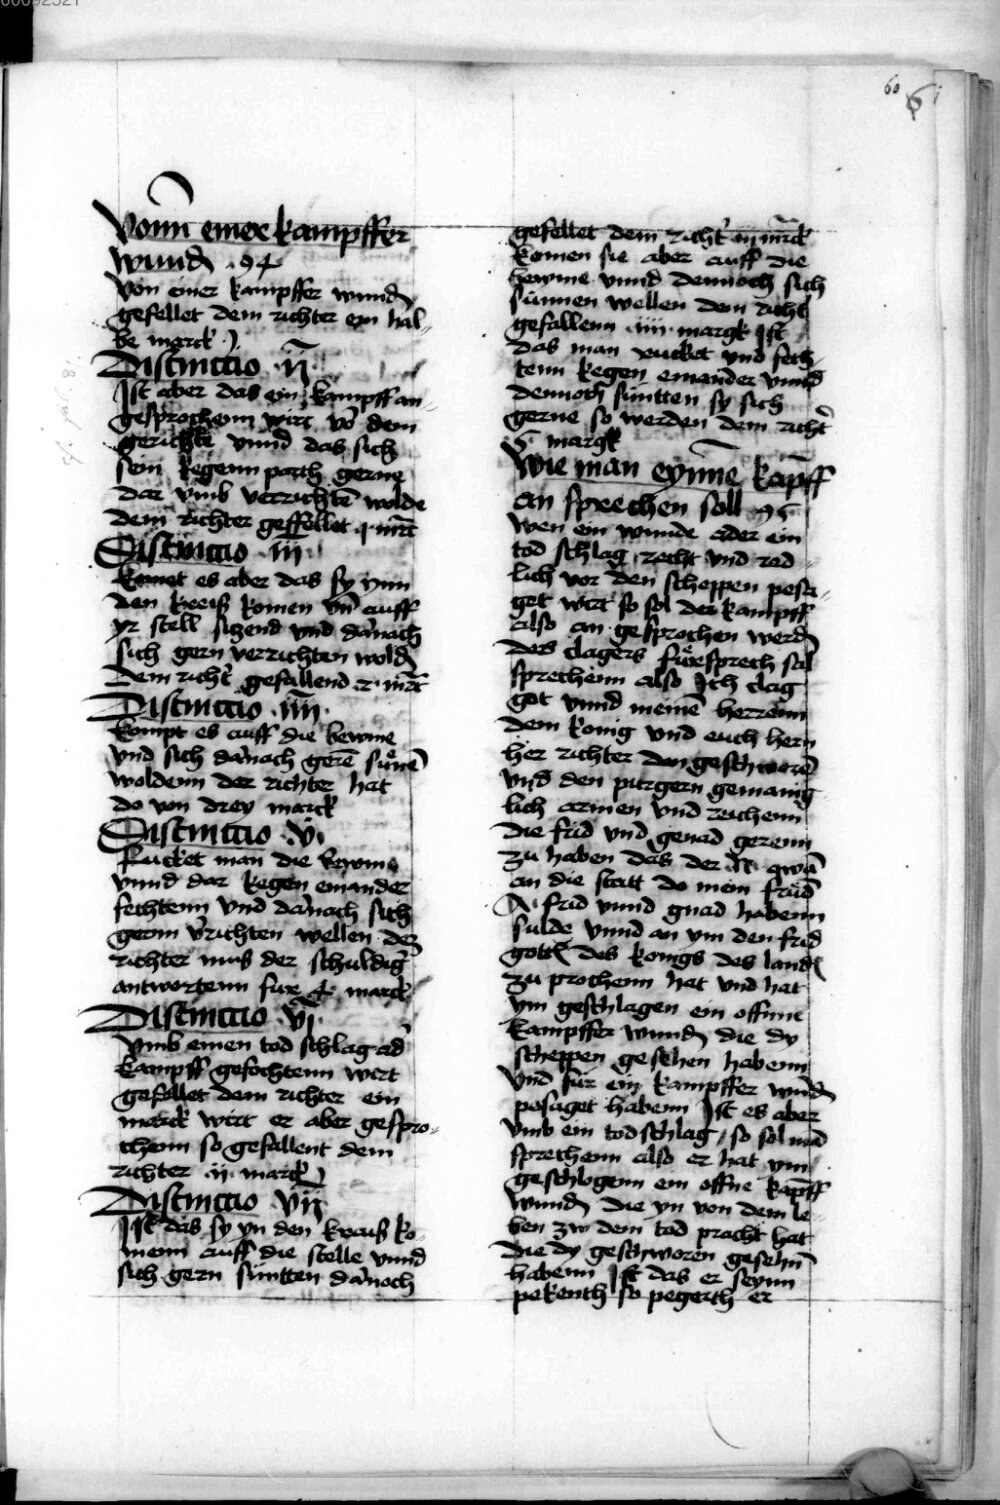 60 61
Vonn einer kampffer
wund 94
Von einer kampffer wund
gefellet dem richter ein hal-
be marck
Distinctio ·ij·
Ist aber das ein kampff an-
gesprochenn wirt vo dem
gerichte vnnd das sich
sein kegenn parth gerne
dar vmb verrichte wolde
dem richter geffellet ·j· mrc
Distinctio ·iij·
komet es aber das sy ynn
den kreiß komen vn auff
yr stell sizend vnd danach
sich gern verrichten wold
dem richt gefallend ·2· mrc
Distinctio ·iiij·
kompt es auff die bewme
vnd sich danach gere sune
woldenn der richter hat
do von drey marck
Distinctio ·v·
Rucket man die bewme
vnnd dar kegen einander
fechtenn vnd danach sich
gernn vrichten wellen der
richter mus der schuldig
antwortenn fur 4 marck
Distinctio vj
Vmb einen tod schlag ad
kampff gefochtenn wirt
gefellet dem richter ein
marck wirt er aber gespro-
chenn so gefallent dem
richter ·ij· marck
Distinctio vij
Ist das sy yn den kreiß ko-
menn auff die stelle vnnd
sich gern suntten danoch
gefellet dem richt iij mrck
komen sie aber auff die
bewme vnnd dennoch sich
sunnen wellen dem richt
gefallenn ·iiij· margk Ist
das man rucket vnd fech-
tenn kegen einander vnnd
dennoch suntten sy sich
gerne so werden dem richt
5 margk
Wie man eynne kapff
an sprechen soll 95
Wen ein wunde ader ein
tod schlag recht vnd red-
lich vor den scheppen pesa-
get wirt so sol der kampff
also an gesprochen werd
des clagers fursprech sal
sprechenn also Ich clag
got vnnd meine herrenn
dem konig vnd euch hern
her richter den geschwore
vnd den purgern gemanig-
lich armen vnd reichenn
die frid vnd genad gerenn
zu haben das der N qwa
an die statt do mein frund
N frid vnnd gnad habenn
sulde vnnd an ym den frid
gottes des konigs des landes
zu prochenn hat vnd hat
ym geschlagen ein offnne
kampffer wund die dy
scheppen gesehen habenn
vnd fur ein kampffer wund
pesaget habenn Ist es aber
vmb ein todschlag so sol mad
sprechenn also er hat ym
geschlogenn ein offne kapff
wund die yn von dem le-
ben zw dem tod pracht hat
die dy geschworen gesehn
habenn Ist das er seynn
pekenth so pegerth er